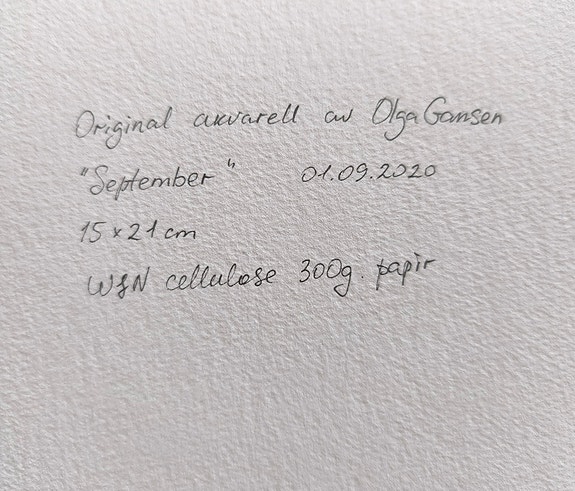 Original akvarell av Olga Gamsen
"September" 01.09.2020
15 x 21 cm
W&N cellulose 300g papir